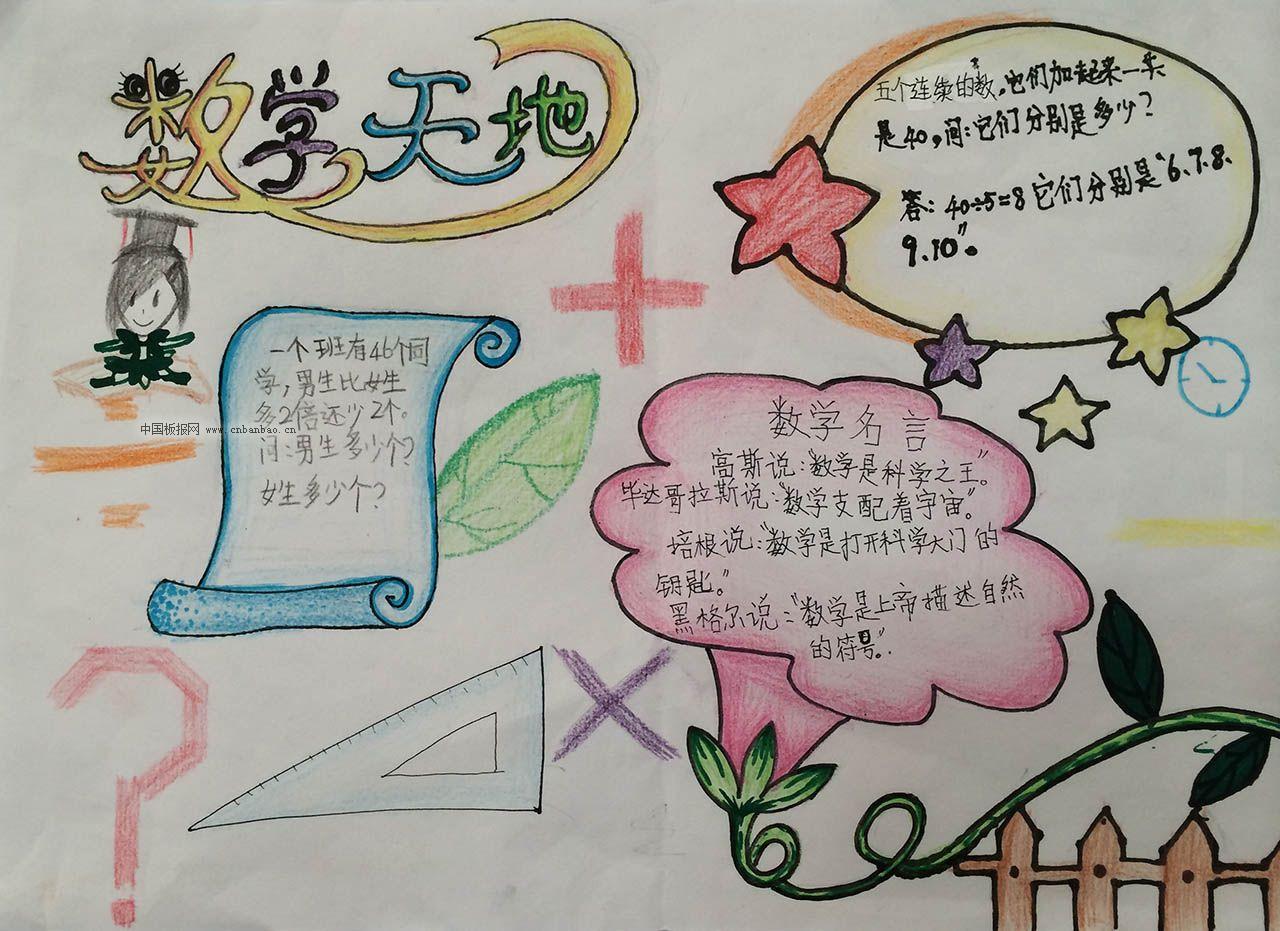 数学天地
五个连续的数，它们加起来一共
是40，问：它们分别是多少？
答：40÷5=8它们分别是“6、7、8、
9、10”。
一个班有46个同
学，男生比女生
多2倍还少2个。
问：男生多少个？
女生多少个？
中国板报网 www.cnbanbao.cn
数学名言
高斯说：“数学是科学之王”。
毕达哥拉斯说：“数学支配着宇宙”。
培根说：“数学是打开科学大门的
钥匙。”
黑格尔说：“数学是上帝描述自然
的符号”。